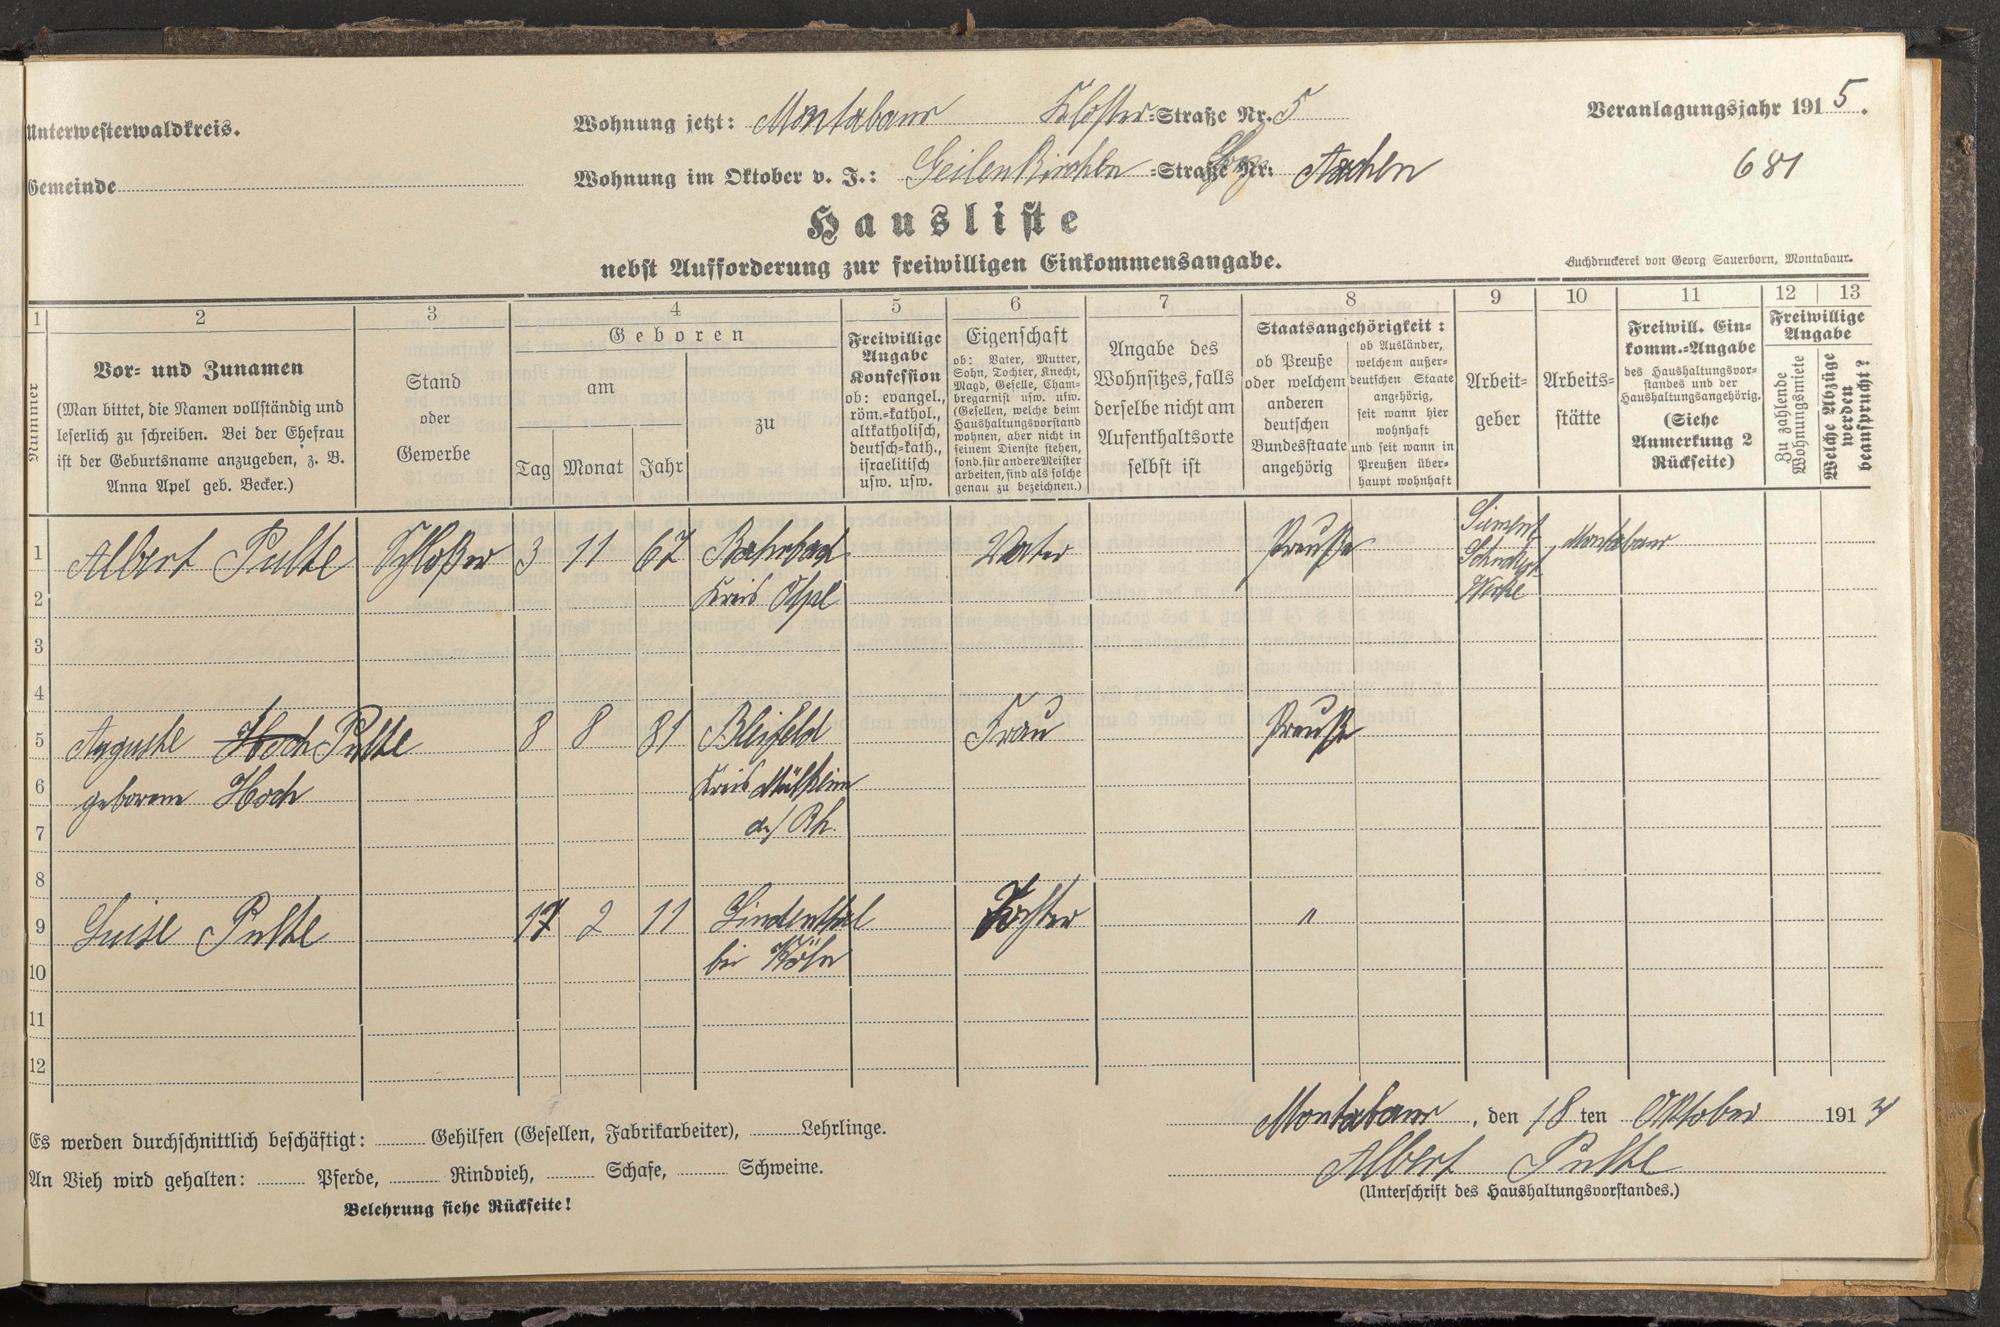 Unterwesterwaldkreis.
Wohnung jetzt: Montabaur Kloster-Straße Nr. 5
Veranlagungsjahr 1915.
Gemeinde
Wohnung im Oktober v. J.: Geilenkirchen -Straße Nr. Aachen
681
Hausliste
nebst Aufforderung zur freiwilligen Einkommensangabe.
Buchdruckerei von Georg Sauerborn, Montabaur.
1 2 3 4 5 6 7 8 9 10 11 12 13
Nummer
Vor- und Zunamen
(Man bittet, die Namen vollständig und
leserlich zu schreiben. Bei der Ehefrau
ist der Geburtsname anzugeben, z. B.
Anna Apel geb. Becker.)
Stand
oder
Gewerbe
Geboren
am
zu
Tag Monat Jahr
Freiwillige
Angabe
Konfession
ob: evangel.,
röm.-kathol.,
altkatholisch,
deutsch-kath.,
israelitisch
usw. usw.
Eigenschaft
ob: Vater, Mutter,
Sohn, Tochter, Knecht,
Magd, Geselle, Cham-
bregarnist usw. usw.
(Gesellen, welche beim
Haushaltungsvorstand
wohnen, aber nicht in
seinem Dienste stehen,
sond. für andere Meister
arbeiten, sind als solche
genau zu bezeichnen.)
Angabe des
Wohnsitzes, falls
derselbe nicht am
Aufenthaltsorte
selbst ist
Staatsangehörigkeit:
ob Preuße
oder welchem
anderen
deutschen
Bundesstaate
angehörig
ob Ausländer,
welchem außer-
deutschen Staate
angehörig,
seit wann hier
wohnhaft
und seit wann in
Preußen über-
haupt wohnhaft
Arbeit-
geber
Arbeits-
stätte
Freiwill. Ein-
komm.-Angabe
des Haushaltungsvor-
standes und der
Haushaltungsangehörig.
(Siehe
Anmerkung 2
Rückseite)
Freiwillige
Angabe
Zu zahlende
Wohnungsmiete
Welche Abzüge
werden
beansprucht?
1 Albert Pulte Schloßer 3 11 67 Rahrbach Vater Preuße Siemens Schuckert Werke Montabaur
2 Kreis Olpe
3
4
5 Auguste Hoch Pulte 8 8 81 Bleifeld Frau Preuße
6 geborene Hoch Kreis Mülheim
7 a/ Rh.
8
9 Luise Pulte 17 2 11 Lindenthal Tochter "
10 bei Köln
11
12
Montabaur, den 18 ten Oktober 1914
Es werden durchschnittlich beschäftigt: Gehilfen (Gesellen, Fabrikarbeiter), Lehrlinge.
Albert Pulte
An Vieh wird gehalten: Pferde, Rindvieh, Schafe, Schweine.
(Unterschrift des Haushaltungsvorstandes.)
Belehrung siehe Rückseite!